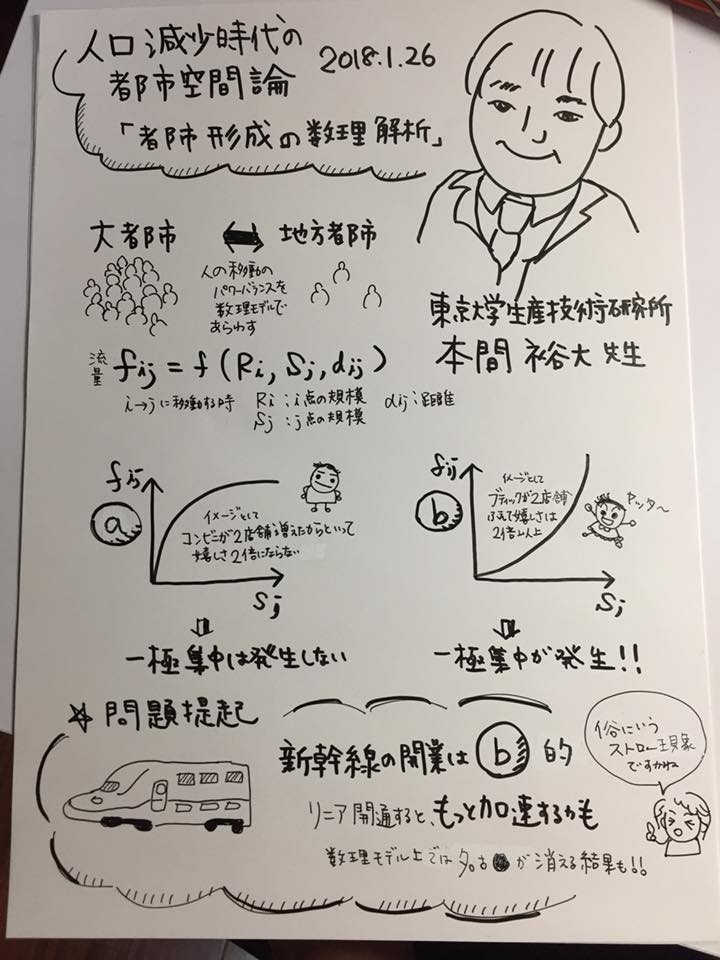 人口減少時代の
都市空間論
2018.1.26
「都市形成の数理解析」
大都市 ⇔ 地方都市
人の移動の
パワーバランスを
数理モデルで
あらわす
東京大学生産技術研究所
本間 裕大 先生
流量 fij = f (Ri, Sj, dij)
i→jに移動する時 Ri : i点の規模 dij : 距離
Sj : j点の規模
fij
ⓐ
イメージとして
コンビニが2店舗増えたからといって
嬉しさ2倍にならない
Sj
⇩
一極集中は発生しない
fij
ⓑ
イメージとして
ブティックが2店舗
ふえて嬉しさは
2倍以上
ヤッタ〜
Sj
⇩
一極集中が発生!!
☆ 問題提起
新幹線の開業は ⓑ 的
リニア開通すると、もっと加速するかも
数理モデル上では名古●が消える結果も!!
俗にいう
ストロー現象
ですかね